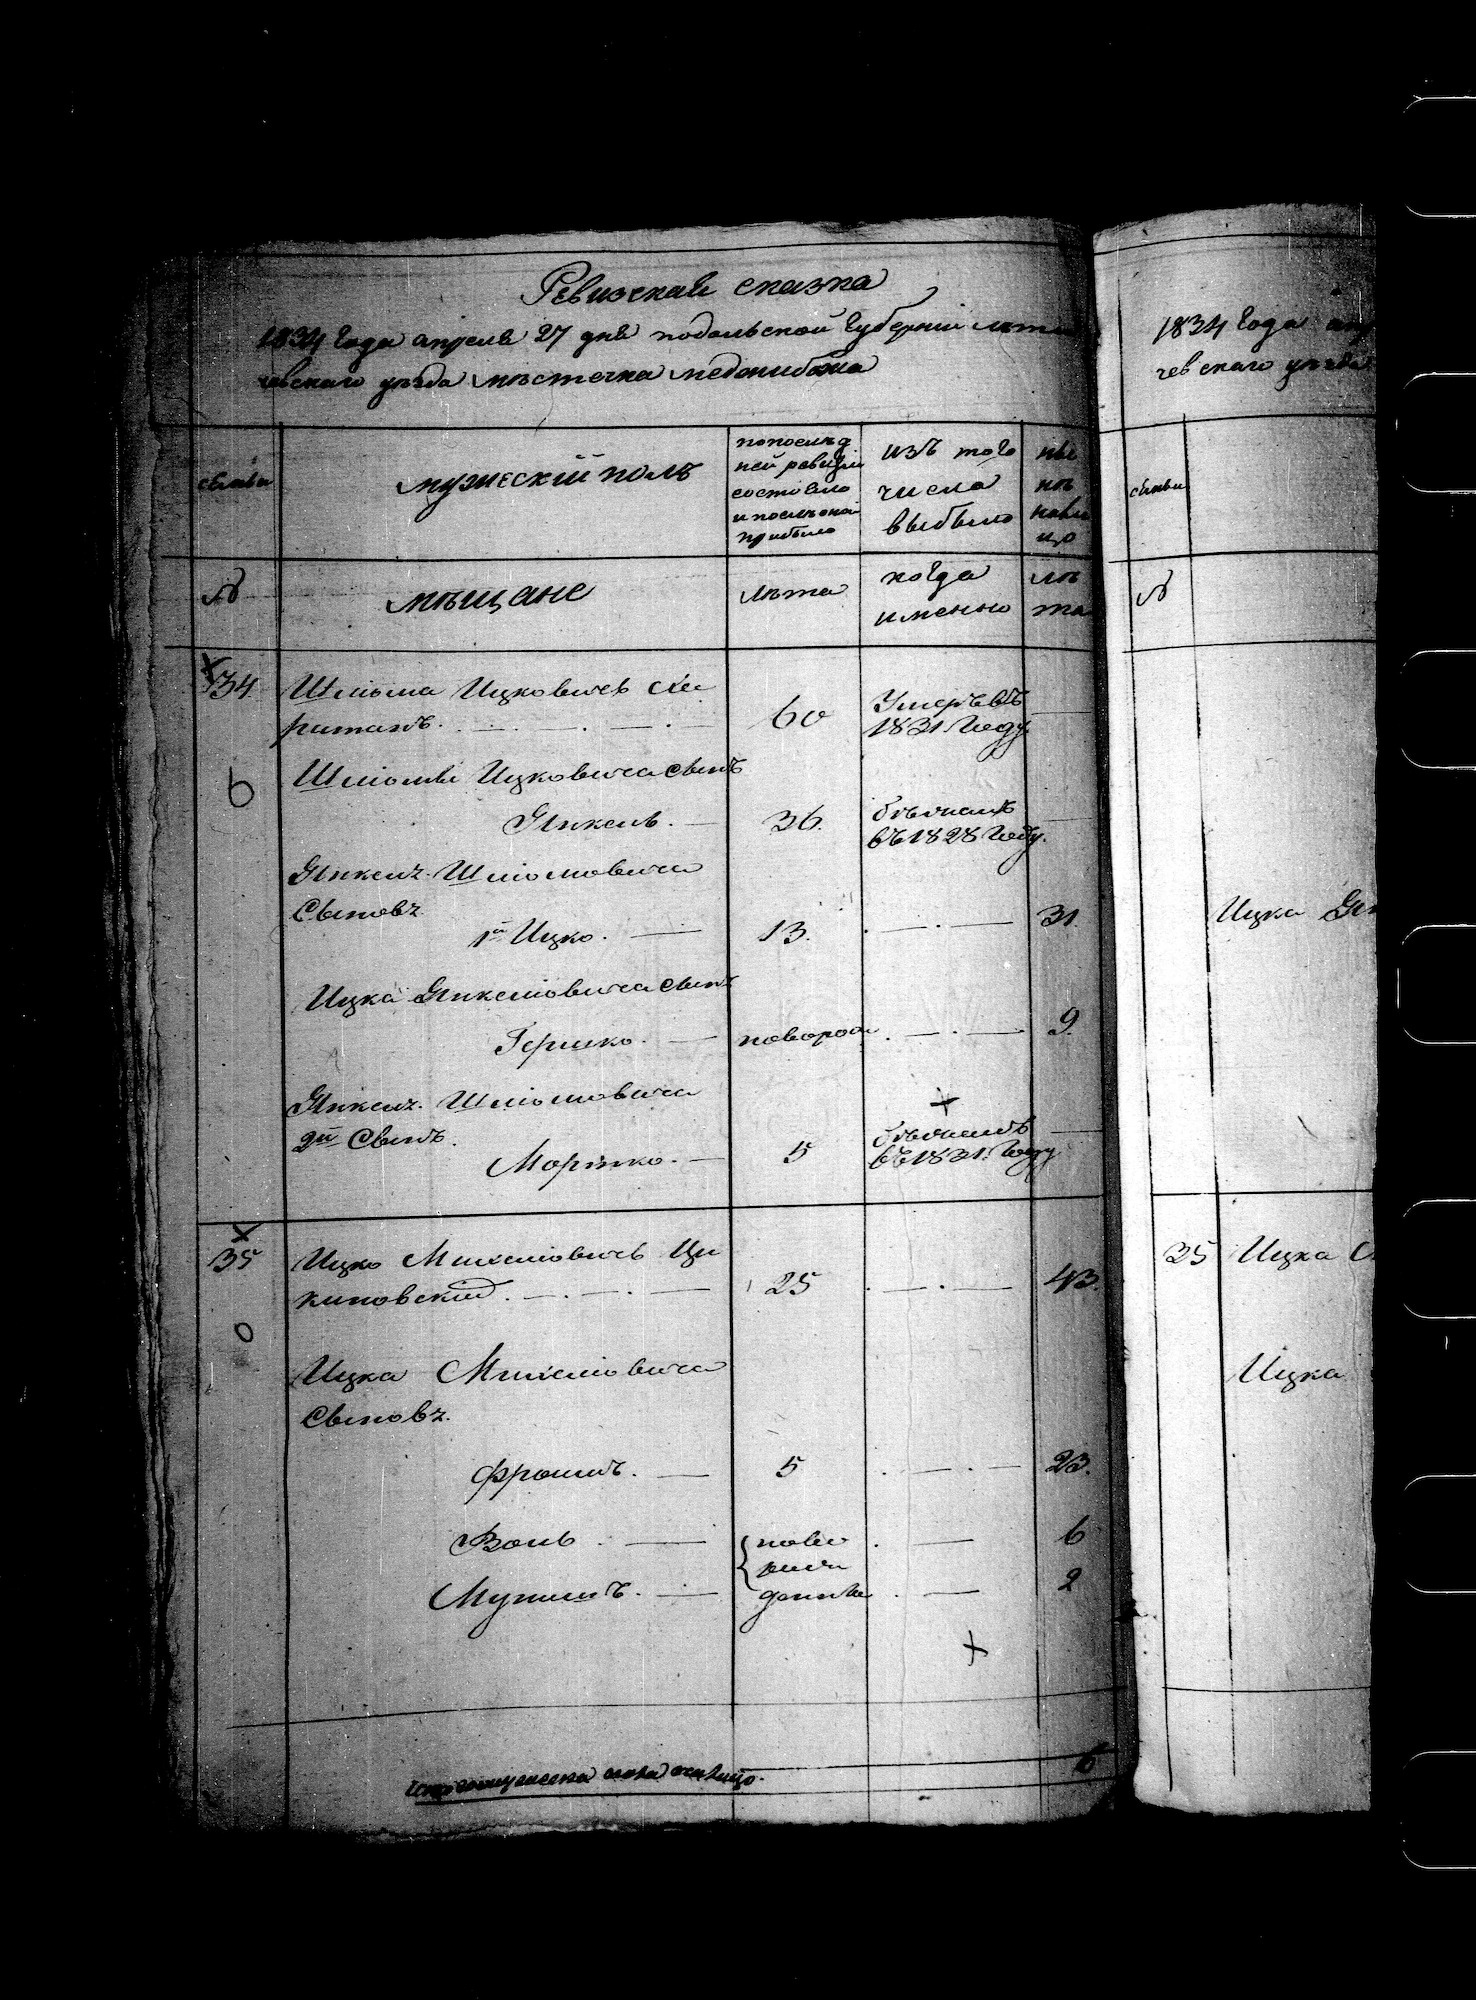 Ревизская сказка
1834 года апреля 27 дня подольской губернии лети
чевскаго уезда местечка меджибожа
семьи
мужескій полъ
попослед
ней ревизіи
состояло
и послеоной
прибыло
изъ того
числа
выбыло
ныне
на
лицо
№
мещане
лета
когда
именно
ле
та
34
Шліома Ицковичъ
ританъ.
60
Умеръ въ
1831 Году
6
Шліомы Ицковича сынъ
Янкель.
36.
бежалъ
въ 1828 Году.
Янкеля Шліомовича
Сыновя
1й Ицко.
13.
31.
Ицка Янкеліовича сынъ
Гершко.
новорож
9.
Янкеля Шліомовича
2й Сынъ.
Моршко.
5
бежалъ
въ 1831 Году
35
Ицко Михеліовичъ Ци
киновскій.
25
43.
0
Ицка Михеліовича
Сыновя.
Фроимъ.
5
23.
Волъ
ново
6
рож
Мунишъ.
денные
2
Итого мужеска пола на лицо.
6
1834 Года апр
чевскаго уезда
семьи
№
Ицка Ян
35 Ицка
Ицка